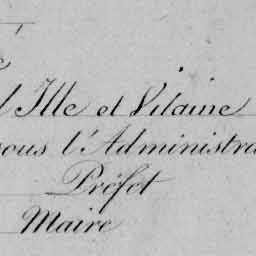 d'Ille et Vilaine
sous l'Administra
Préfet
Maire